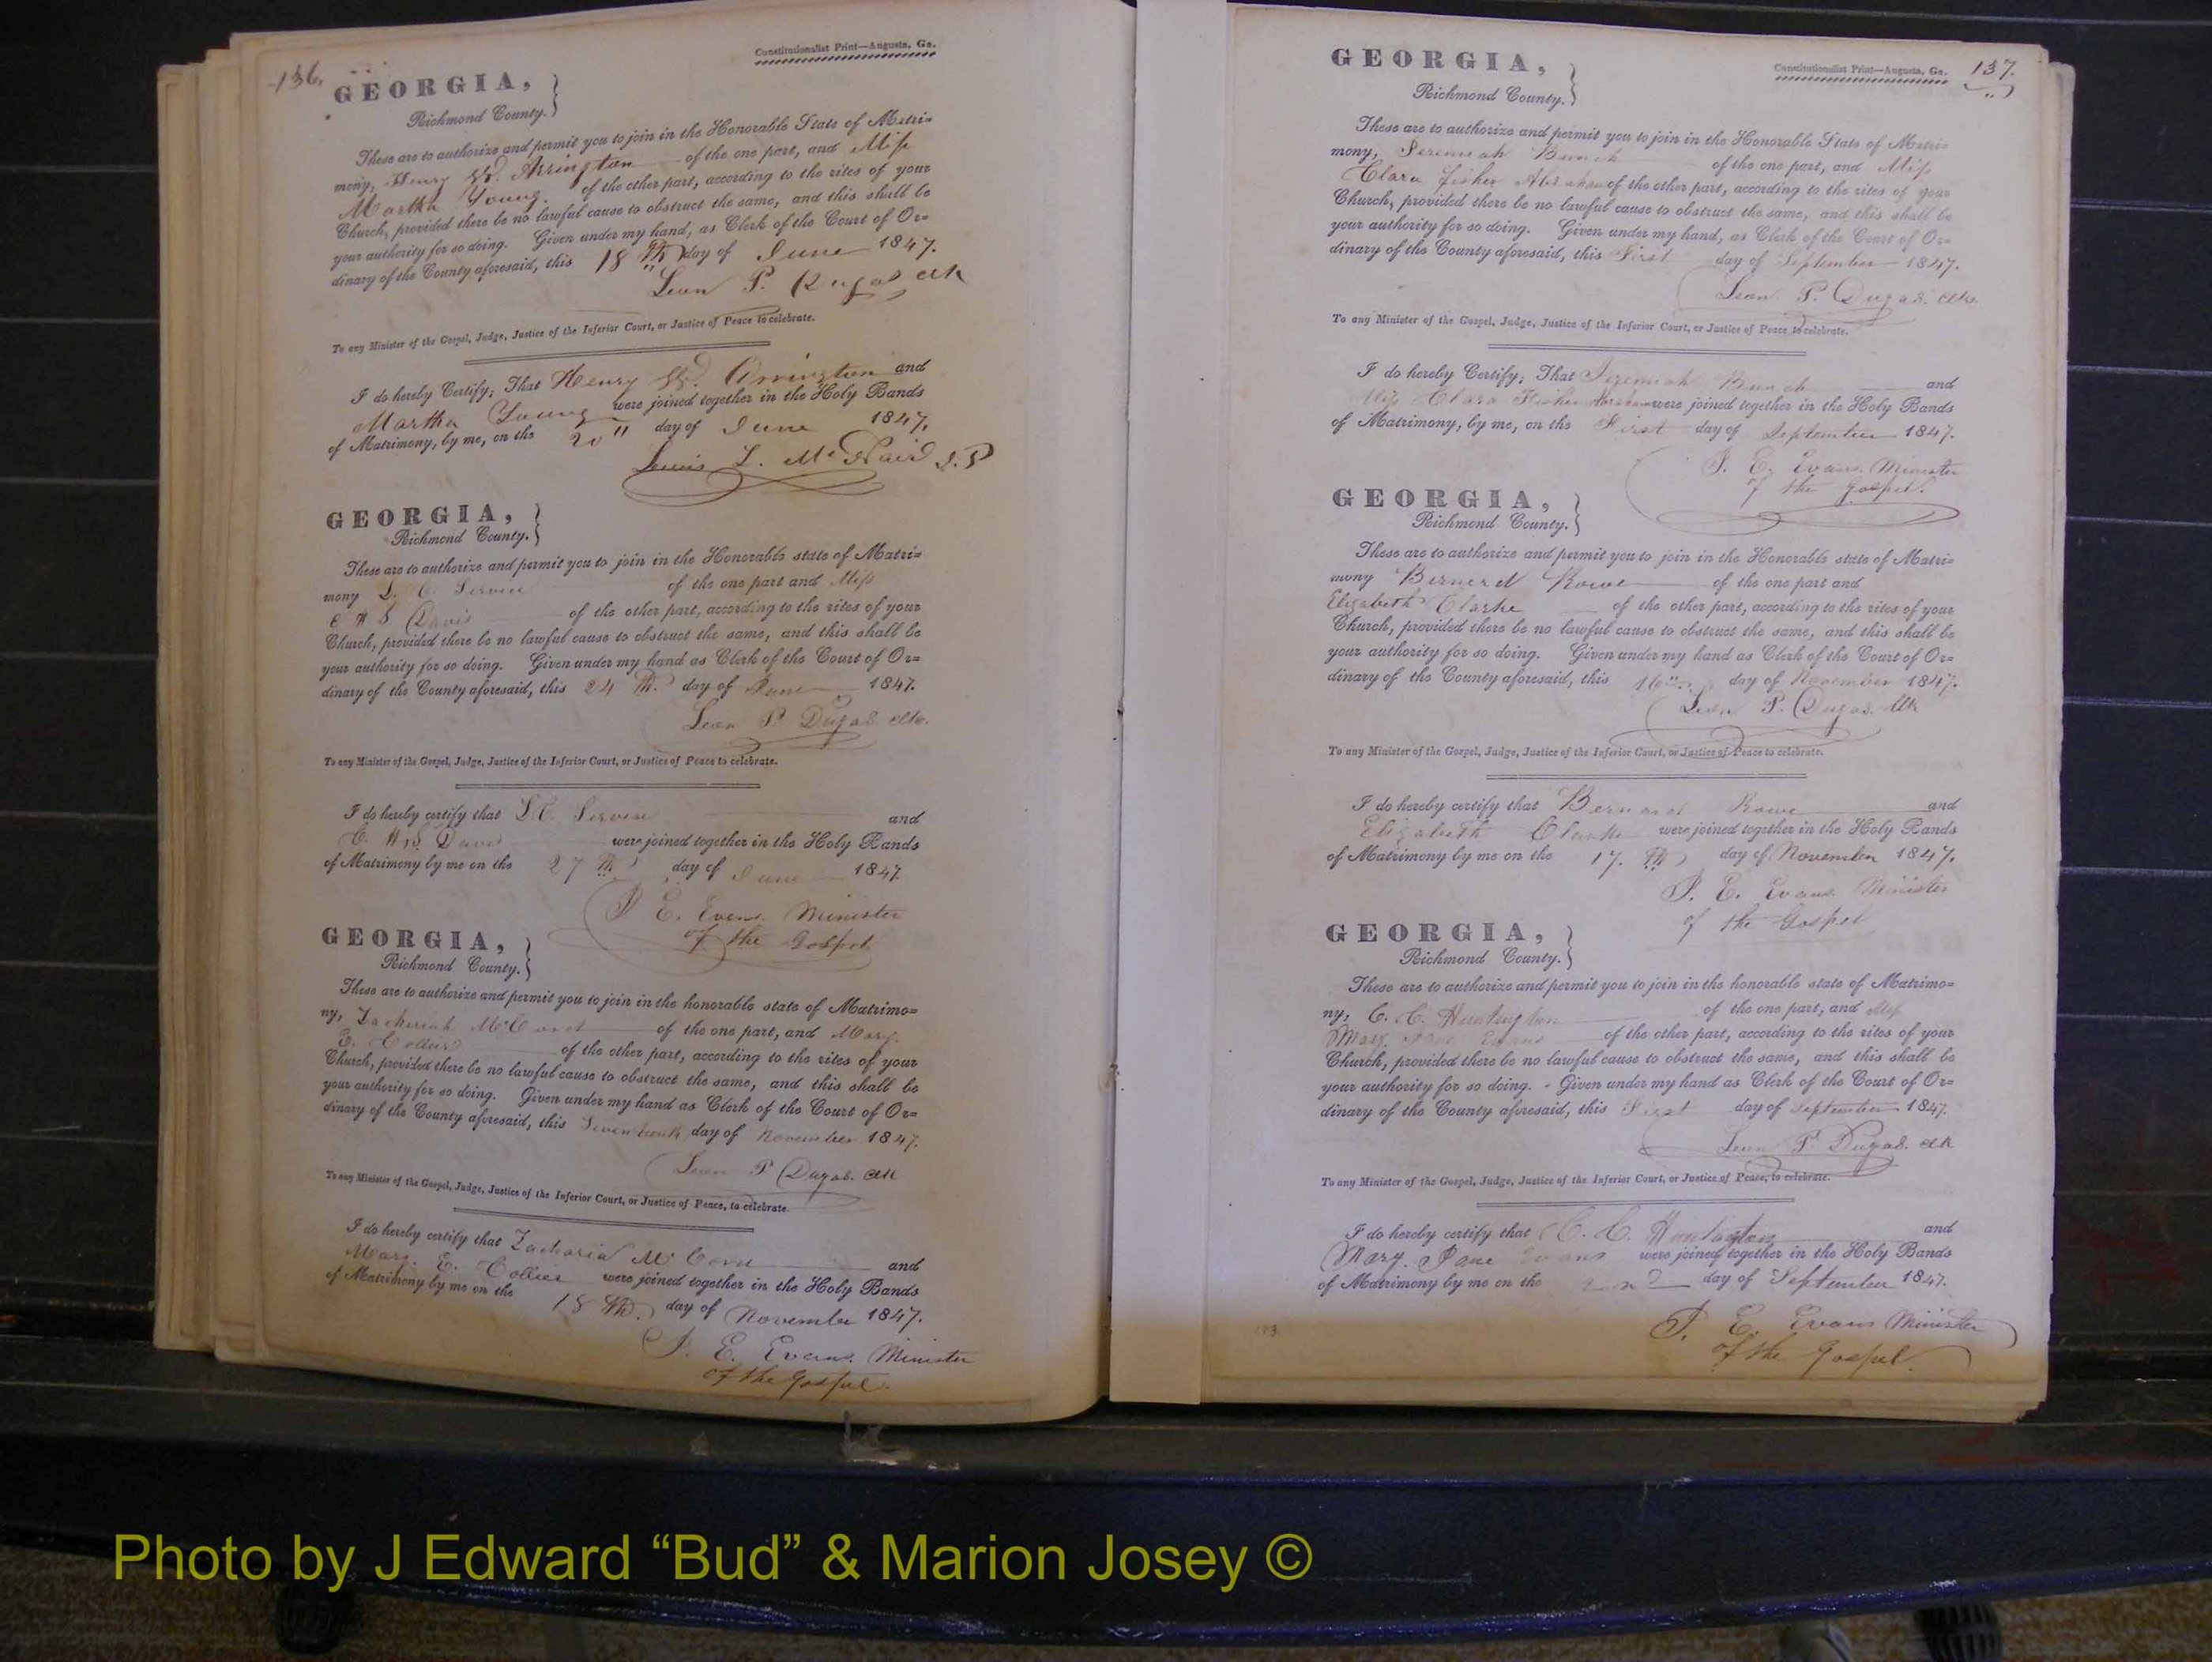 136.
Constitutionalist Print—Augusta, Ga.
GEORGIA,
Richmond County.
These are to authorize and permit you to join in the Honorable State of Matri=
mony, Henry W. Arrington of the one part, and Miss
Martha Young. of the other part, according to the rites of your
Church, provided there be no lawful cause to obstruct the same, and this shall be
your authority for so doing. Given under my hand, as Clerk of the Court of Or=
dinary of the County aforesaid, this 18th day of June 1847.
Leon P. Dugas Clk
To any Minister of the Gospel, Judge, Justice of the Inferior Court, or Justice of Peace to celebrate.
I do hereby Certify, That Henry W. Arrington and
Martha Young were joined together in the Holy Bands
of Matrimony, by me, on the 20" day of June 1847,
Lewis L. McNair J.P
GEORGIA,
Richmond County.
These are to authorize and permit you to join in the Honorable state of Matri=
mony of the one part and Miss
Davis of the other part, according to the rites of your
Church, provided there be no lawful cause to obstruct the same, and this shall be
your authority for so doing. Given under my hand as Clerk of the Court of Or=
dinary of the County aforesaid, this 24th. day of June 1847.
Leon P Dugas. Clk.
To any Minister of the Gospel, Judge, Justice of the Inferior Court, or Justice of Peace to celebrate.
I do hereby certify that and
Davis were joined together in the Holy Bands
of Matrimony by me on the 27th day of June 1847.
J E. Evans. Minister
of the Gospel
GEORGIA,
Richmond County.
These are to authorize and permit you to join in the honorable state of Matrimo=
ny, Zachariah McCord of the one part, and Mary.
E. Collier of the other part, according to the rites of your
Church, provided there be no lawful cause to obstruct the same, and this shall be
your authority for so doing. Given under my hand as Clerk of the Court of Or=
dinary of the County aforesaid, this Seventeenth day of November 1847.
Leon P Dugas. Clk
To any Minister of the Gospel, Judge, Justice of the Inferior Court, or Justice of Peace, to celebrate.
I do hereby certify that Zacharia McCord and
Mary. E. Collier were joined together in the Holy Bands
of Matrimony by me on the 18th. day of November 1847.
J. E. Evans. Minister
of the Gospel.
137.
Constitutionalist Print—Augusta, Ga.
GEORGIA,
Richmond County.
These are to authorize and permit you to join in the Honorable State of Matri=
mony, Jeremiah Bunch of the one part, and Miss
Clara Fisher Abraham of the other part, according to the rites of your
Church, provided there be no lawful cause to obstruct the same, and this shall be
your authority for so doing. Given under my hand, as Clerk of the Court of Or=
dinary of the County aforesaid, this First day of September 1847.
Leon P. Dugas. Clk.
To any Minister of the Gospel, Judge, Justice of the Inferior Court, or Justice of Peace to celebrate.
I do hereby Certify, That Jeremiah Bunch and
Miss Clara Fisher Abraham were joined together in the Holy Bands
of Matrimony, by me, on the First day of September 1847.
J. E. Evans. Minister
of the Gospel.
GEORGIA,
Richmond County.
These are to authorize and permit you to join in the Honorable state of Matri=
mony Bernard Rowe of the one part and
Elizabeth Clarke of the other part, according to the rites of your
Church, provided there be no lawful cause to obstruct the same, and this shall be
your authority for so doing. Given under my hand as Clerk of the Court of Or=
dinary of the County aforesaid, this 16". day of November 1847.
Leon P. Dugas. Clk
To any Minister of the Gospel, Judge, Justice of the Inferior Court, or Justice of Peace to celebrate.
I do hereby certify that Bernard Rowe and
Elizabeth Clarke were joined together in the Holy Bands
of Matrimony by me on the 17.th day of November 1847.
J. E. Evans. Minister
of the Gospel
GEORGIA,
Richmond County.
These are to authorize and permit you to join in the honorable state of Matrimo=
ny, C. C. Huntington of the one part, and Miss
Mary. Jane Evans of the other part, according to the rites of your
Church, provided there be no lawful cause to obstruct the same, and this shall be
your authority for so doing. Given under my hand as Clerk of the Court of Or=
dinary of the County aforesaid, this First day of September 1847.
Leon P. Dugas. Clk
To any Minister of the Gospel, Judge, Justice of the Inferior Court, or Justice of Peace, to celebrate.
I do hereby certify that C. C. Huntington and
Mary. Jane Evans were joined together in the Holy Bands
of Matrimony by me on the 2nd day of September 1847.
J. E. Evans Minister
of the Gospel.
Photo by J Edward “Bud” & Marion Josey ©